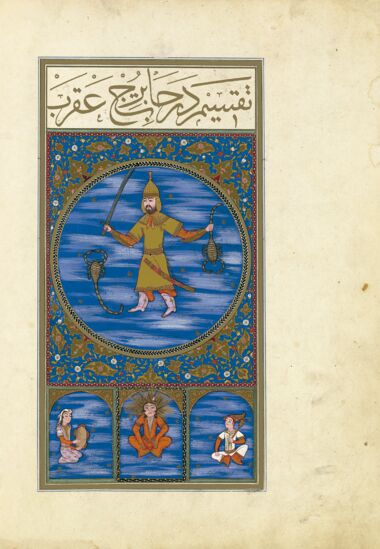 تقسيم درجات برج عقرب